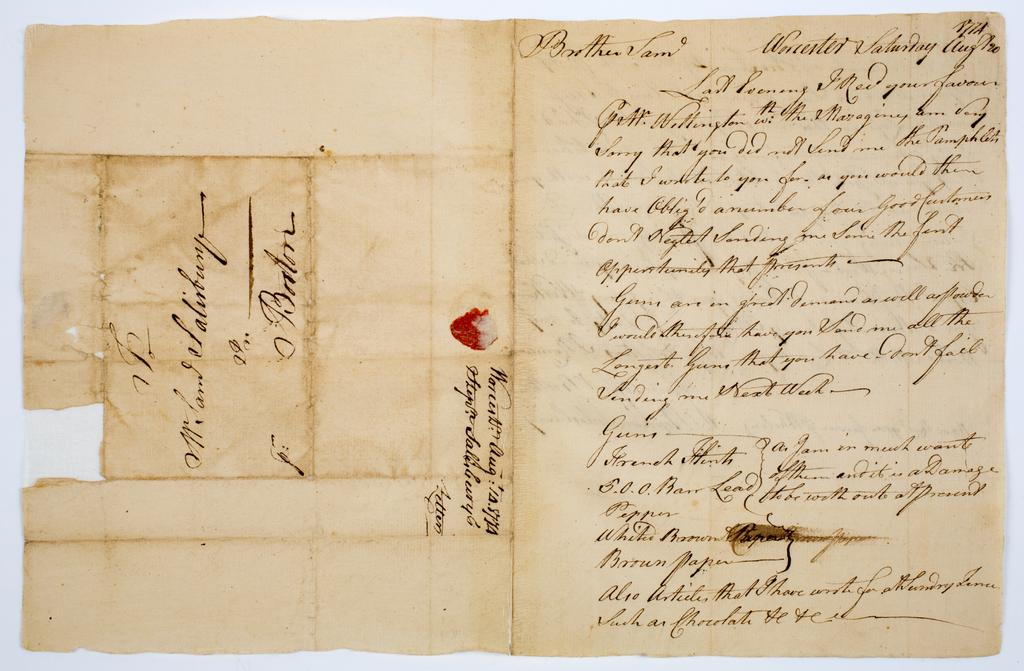 To
Mr. Saml Salisbury
in
Boston
Pr:
Worcester Aug: 20. 1774
Stepn. Salisbury's
Letter
1774
Brother Saml Worcester Saturday Augt 20
Last Evening I Recd your favour
Pr Mr. Wellington wth: the Magazines am very
Sorry that you did not Send me the Pamphlets
that I wrote to you for, as you would then
have Oblig'd a number of our Good Customers
don't Neglet Sending me Some the first
Oppertunity that presents
Guns are in great demand as well as Powder
I would therefore have you Send me all the
Longest Guns that you have. Don't fail
Sending me Next Week
Guns
French Flints
F.O.O. Barr Lead
as I am in much want
of them and it is a Damage
to be without at Present
Pepper
Whited Brown Paper
Brown Paper
Also Articles that I have wrote for at Sundry Times
Such as Chocolate &c &c